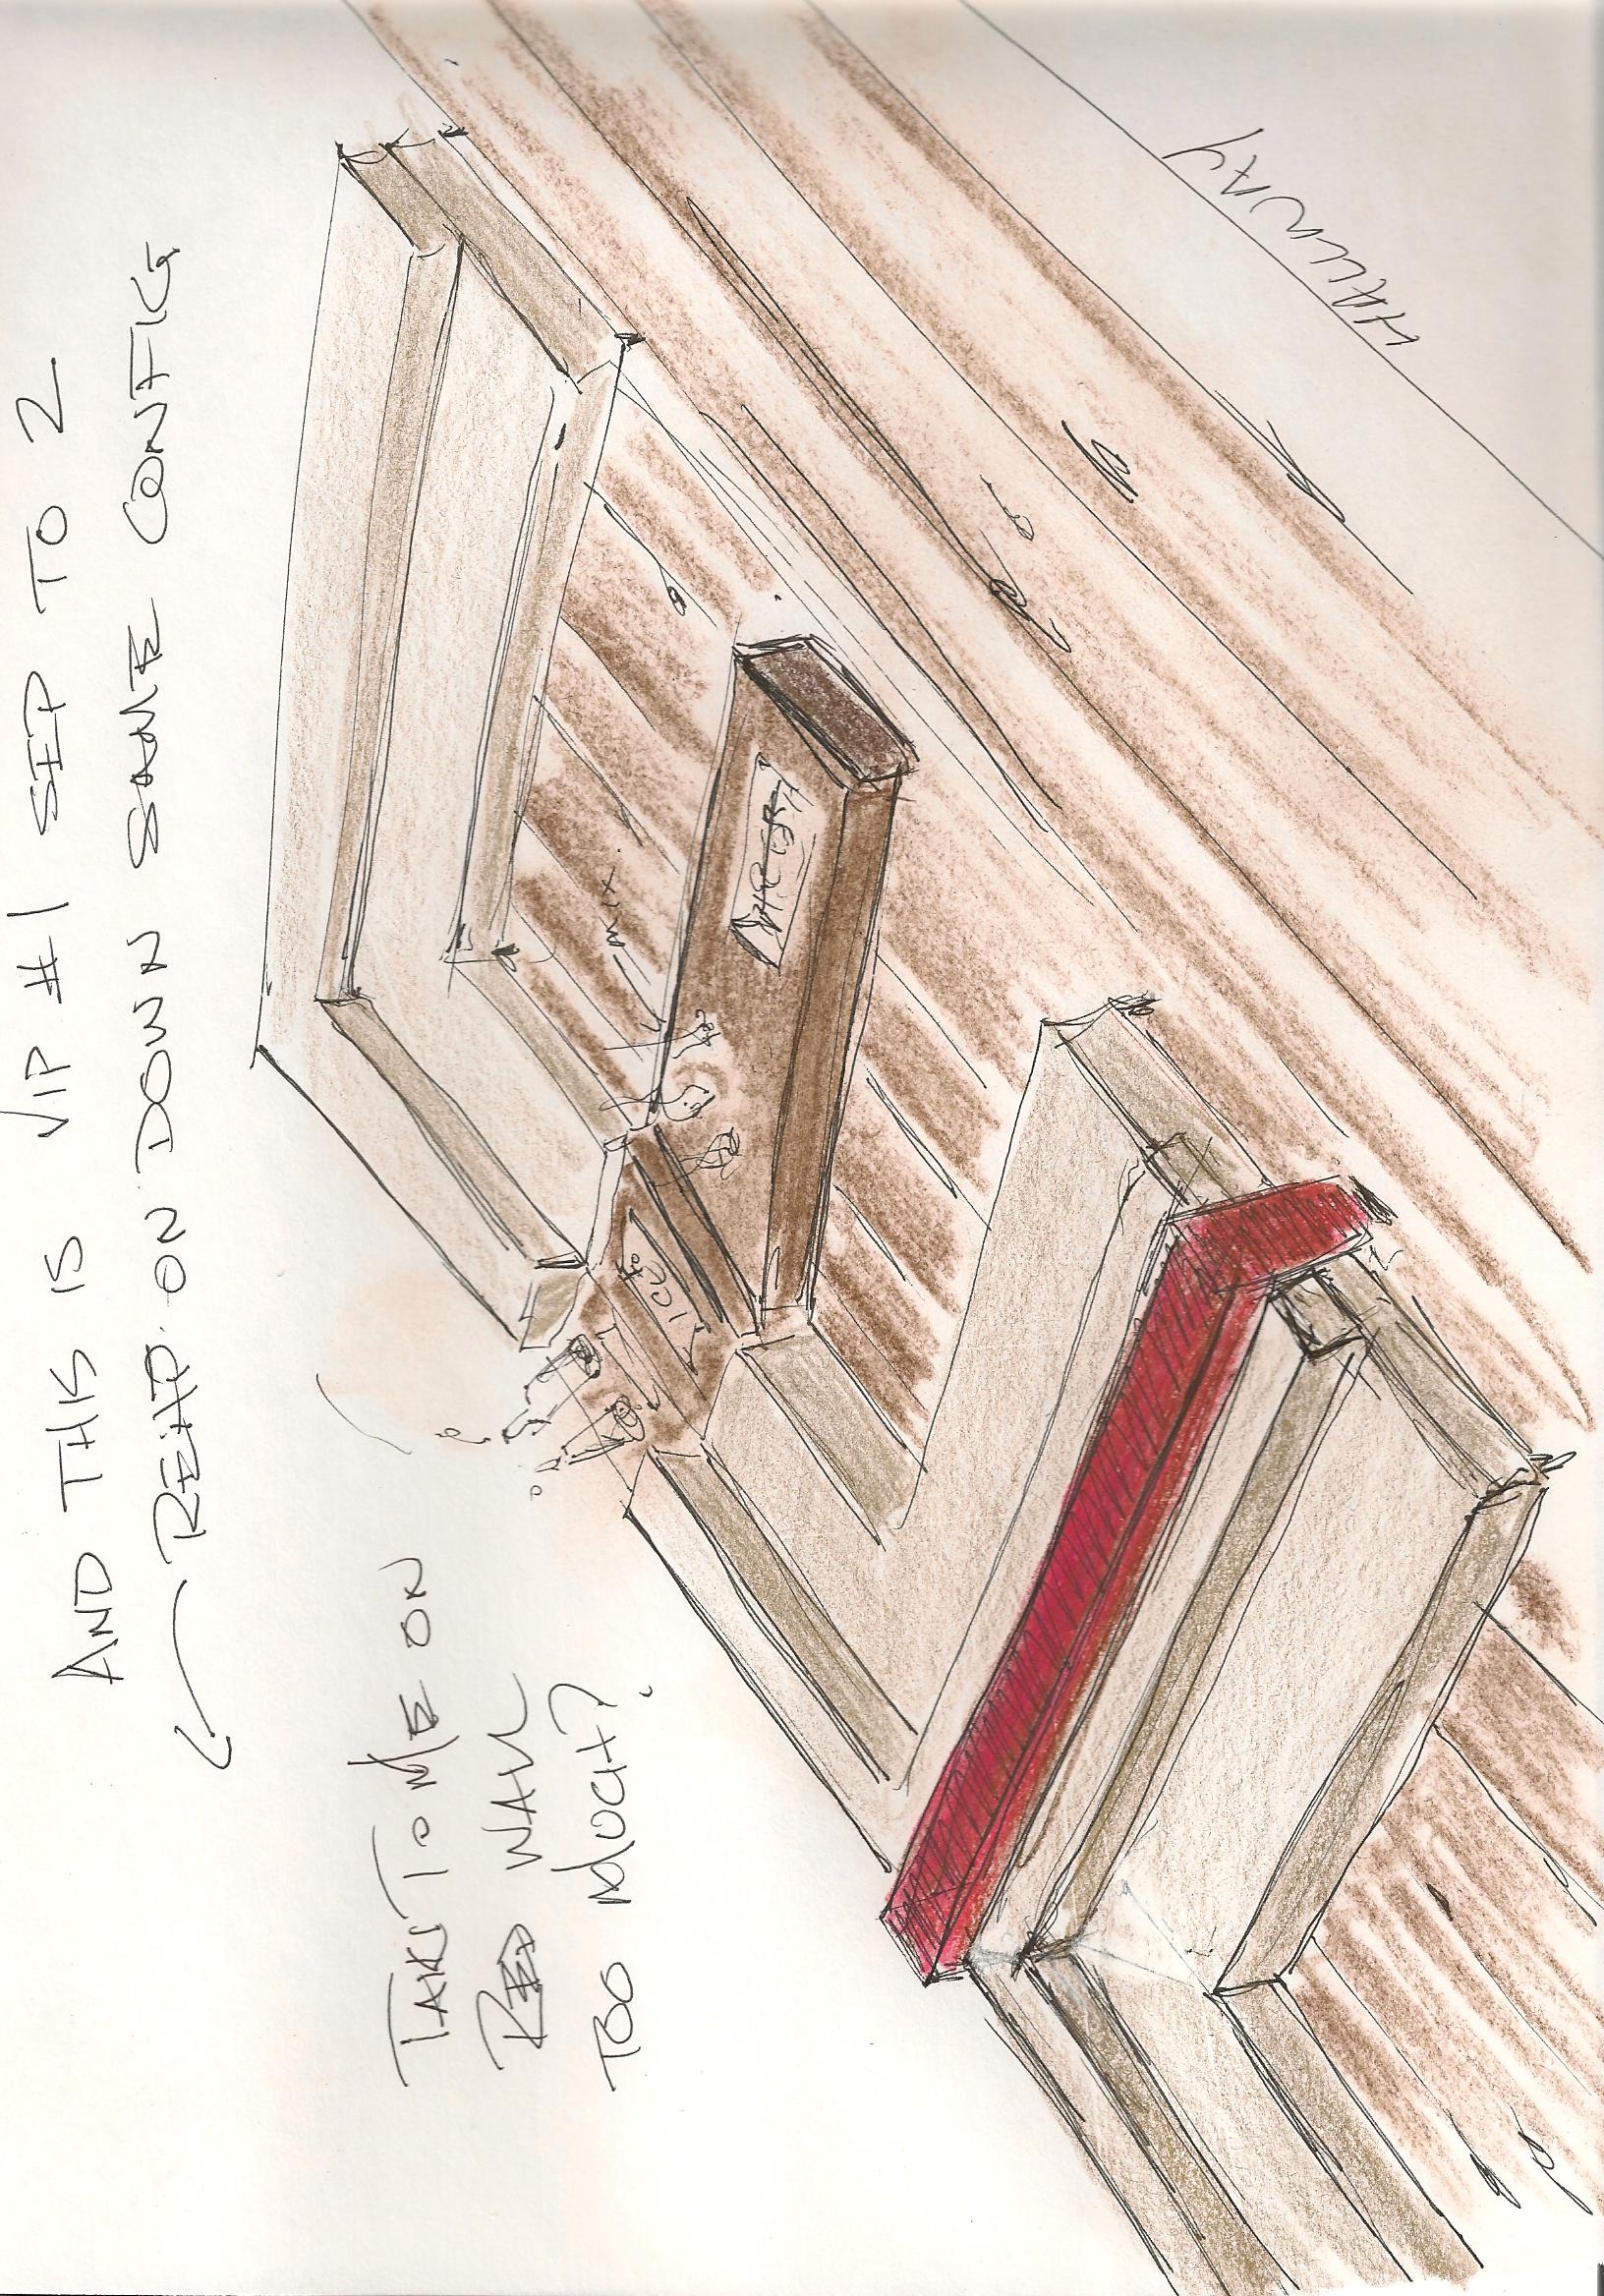 AND THIS IS VIP #1 SEP TO 2
ON DOWN SAME CONFIG
TALK TO ME ON
RED WALL
TOO MUCH?
HALLWAY
MIX.